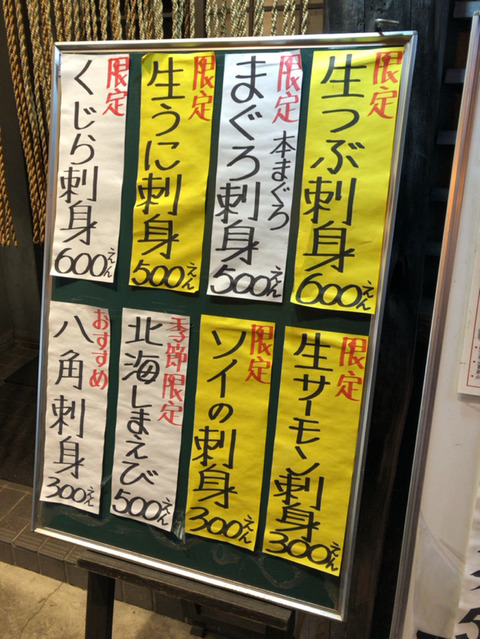 限定
生つぶ刺身
600えん
限定
本まぐろ
まぐろ刺身
500えん
限定
生うに刺身
500えん
限定
くじら刺身
600えん
限定
生サーモン刺身
300えん
限定
ソイの刺身
300えん
季節限定
北海しまえび
500えん
おすすめ
八角刺身
300えん